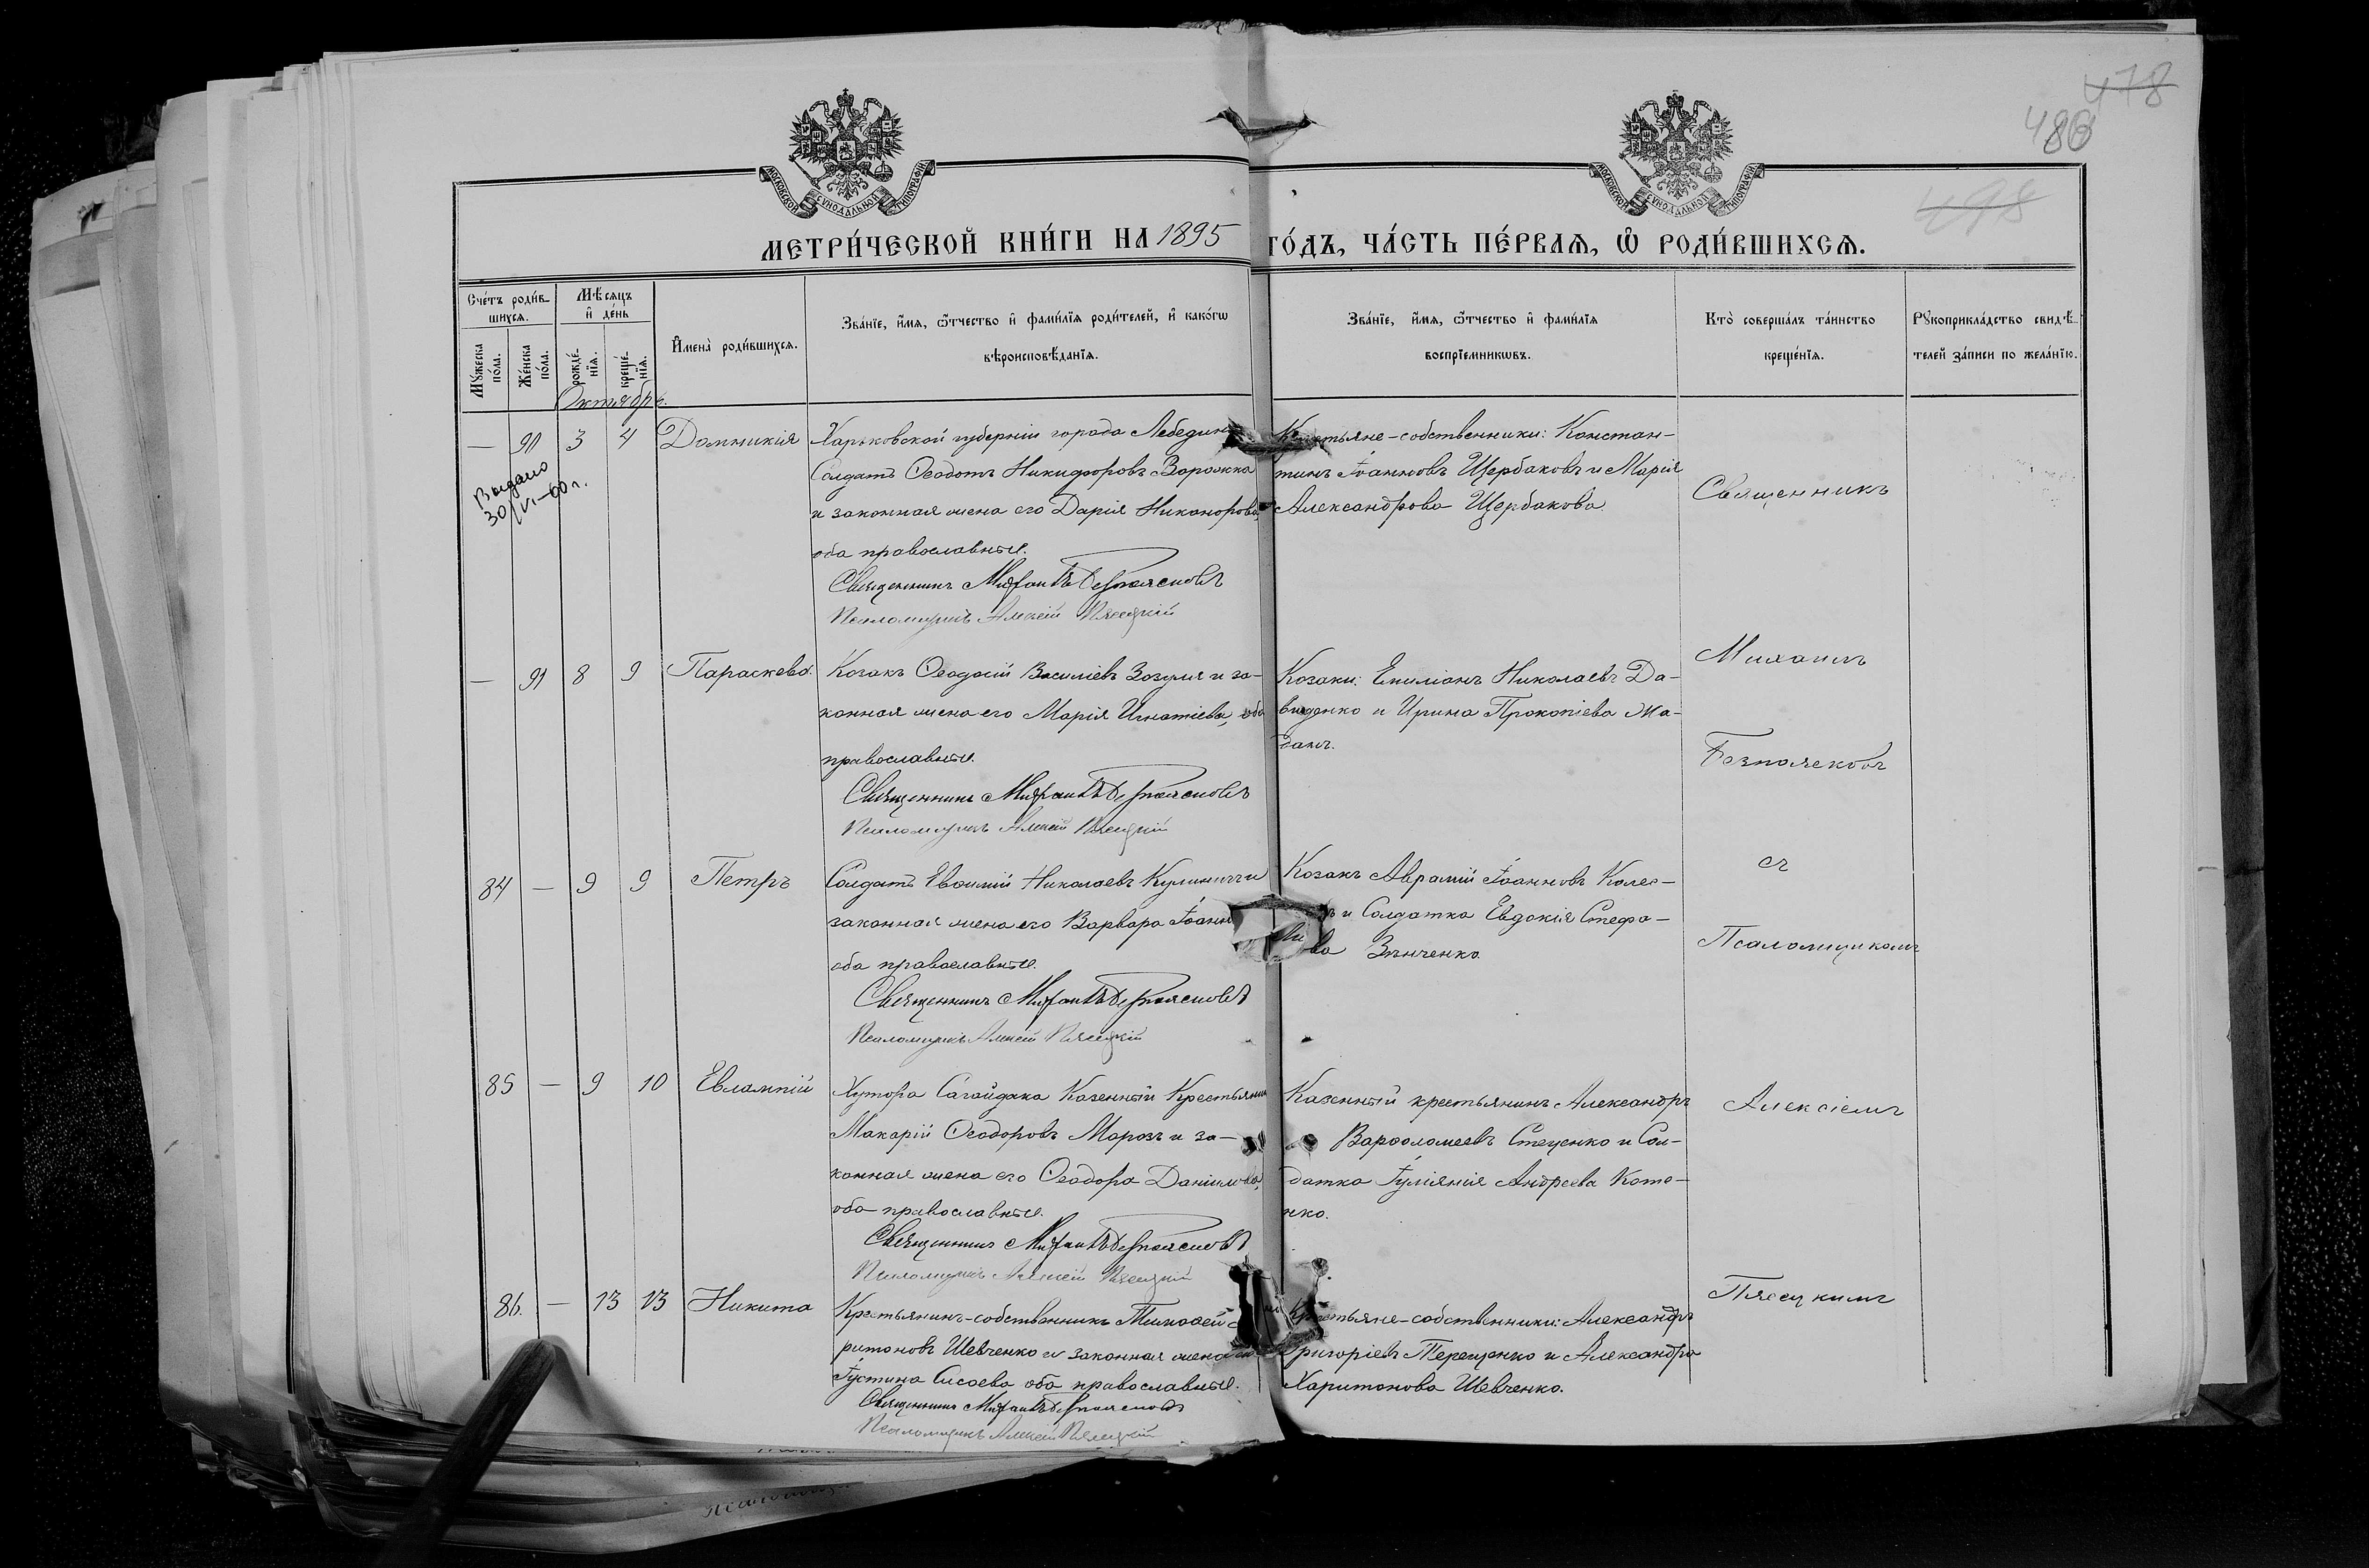 478
480
498
МОСКОВСКОЙ СѴНОДАЛЬНОЙ ТИПОГРАФІИ
МОСКОВСКОЙ СѴНОДАЛЬНОЙ ТИПОГРАФІИ
МЕТРИ́ЧЕСКОЙ КНИ́ГИ НА 1895 ГО́ДЪ, ЧА́СТЬ ПЕ́РВАѦ, Ѡ РОДИ́ВШИХСѦ.
Сче́тъ роди́вшихсѧ.
Мꙋ́жеска по́ла.
Же́нска по́ла.
Мѣ́сѧцъ и҆ де́нь
рожде́нїѧ.
креще́нїѧ.
И҆мена̀ роди́вшихсѧ.
Зва́нїе, и҆́мѧ, ѻ҆́тчество и҆ фами́лїѧ роди́телей, и҆ како́гѡ
вѣроисповѣ́данїѧ.
Зва́нїе, и҆́мѧ, ѻ҆́тчество и҆ фами́лїѧ
воспрїе́мникѡвъ.
Кто̀ соверша́лъ та́инство
креще́нїѧ.
Рꙋкоприкла́дство свидѣ́-
телей за́писи по жела́нїю.
Октябрь.
— 90 3 4 Домникія
Выдано
30/VI-60 г.
Харьковской губерніи города Лебедина
Солдатъ Ѳеодотъ Никифоровъ Ворожка
и законная жена его Дарія Никанорова,
оба православные.
Священникъ Михаилъ Безпоясковъ
Псаломщикъ Алексій Пясецкій
Крестьяне-собственники: Констан-
тинъ Іоанновъ Щербаковъ и Марія
Александрова Щербакова.
Священникъ
— 91 8 9 Параскева.
Козакъ Ѳеодосій Василіевъ Зозуля и за-
конная жена его Марія Игнатіева, оба
православные.
Священникъ Михаилъ Безпоясковъ
Псаломщикъ Алексій Пясецкій
Козаки: Емиліанъ Николаевъ Да-
виденко и Ирина Прокопіева Ма-
данъ.
Михаилъ
Безпоясковъ
84 — 9 9 Петръ
Солдатъ Евѳимій Николаевъ Кулиничъ и
законная жена его Варвара Іоанн
оба православные.
Священникъ Михаилъ Безпоясковъ
Псаломщикъ Алексій Пясецкій
Козакъ Аврамій Іоанновъ Колес-
ъ и Солдатка Евдокія Стефа-
ва Зинченко.
съ
Псаломщикомъ
85 — 9 10 Евлампій
Хутора Сагайдака Казенный Крестьянинъ
Макарій Ѳеодоровъ Морозъ и за-
конная жена его Ѳеодора Даніилова,
оба православные.
Священникъ Михаилъ Безпоясковъ
Псаломщикъ Алексій Пясецкій
Казенный крестьянинъ Александръ
Варѳоломеевъ Стеценко и Сол-
датка Іуліанія Андреева Кото-
нко.
Алексіемъ
86. — 13 13 Никита
Крестьянинъ-собственникъ Тимоѳей
ритоновъ Шевченко и законная жена его
Іустина Сисоева оба православные.
Священникъ Михаилъ Безпоясковъ
Псаломщикъ Алексій Пясецкій
Крестьяне-собственники: Александръ
Григоріевъ Терещенко и Александра
Харитонова Шевченко.
Пясецкимъ